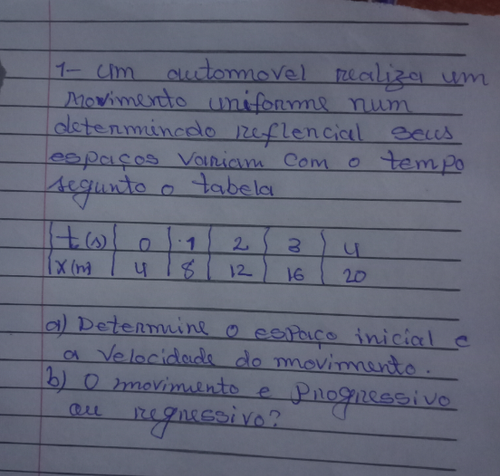 1- Um automovel realiza um
movimento uniforme num
determinado reflencial seus
espaços variam com o tempo
segunto o tabela
t(s) 0 1 2 3 4
x(m) 4 8 12 16 20
a) Determine o espaço inicial e
a velocidade do movimento.
b) O movimento e progressivo
ou regressivo?